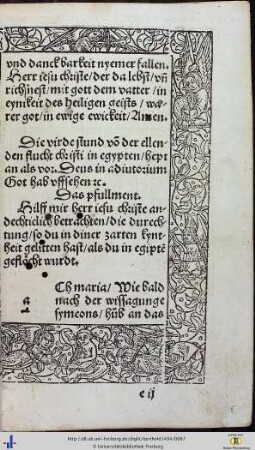 vnd danckbarkeit nyemer fallen.
Herr iesu christe/der da lebst/vn̄
richsnest/mit gott dem vatter/in
eynikeit des heiligen geists/wa-
rer got/in ewige ewickeit/Amen.
Die virde stund vō der ellen-
den flucht christi in egypten/hept
an als vor. Deus in adiutorium
Got hab vffsehen ⁊c.
Das psullment.
Hilff mir herr iesu christe an-
dechticlich betrachten/die durech-
tung/so du in diner zarten kynt-
heit gelitten hast/als du in egiptē
geflöcht wurdt.
a
Ch maria/Wie bald
nach der wissagunge
symeons/hůb an das
e ij
http://dl.ub.uni-freiburg.de/diglit/berthold1494-0067
© Universitätsbibliothek Freiburg